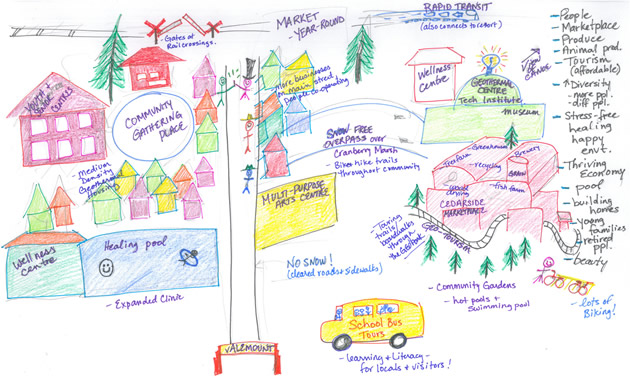 MARKET
- YEAR-ROUND
RAPID TRANSIT
(also connects to resort)
- Gates at
Railcrossings.
COMMUNITY
GATHERING
PLACE
- more businesses
on main street
people co-operating
Wellness
centre
GEOTHERMAL
CENTRE
Tech Institute
museum
- People
- Marketplace
- Produce
- Animal prod.
- Tourism
(affordable)
- ↑ Diversity
- more ppl.
- diff ppl.
- Stress-free
healing
happy
envt.
- Thriving
Economy
- pool
- building
homes
- young
families
- retired
ppl.
- beauty
SNOW FREE
OVERPASS over
Cranberry Marsh
- Bike-hike trails
throughout community
- Medium
Density
Geothermal
Housing
Greenhouse
Brewery
recycling
fish farm
CEDARSIDE
MARKETPLACE
GEO-TOURISM
MULTI-PURPOSE
ARTS CENTRE
- Touring
trails/
boardwalks
through
the
Wellness
centre
Healing pool
- Expanded Clinic
NO SNOW!
(cleared roads + sidewalks)
- Community Gardens
- hot pools +
Swimming pool
- lots of
Biking!
School Bus
Tours
VALEMOUNT
- learning + Literacy -
for locals + visitors!